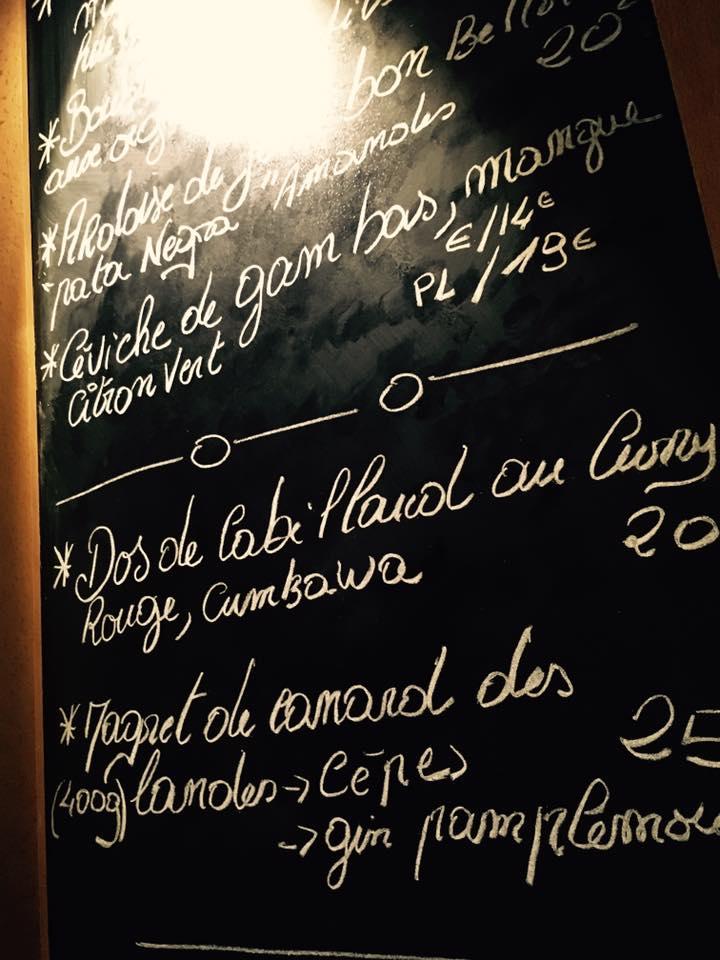 * 
bon Bello
20
aux
* Ardoise de
pata Negra "Amandes
* Céviche de gambas, mangue
Citron Vert
€/14€
PL/19€
* Dos de Cabillaud au Curry
Rouge, Cumbawa
20
* Magret de canard des
(400g) landes → Cèpes
25
→ gin pamplemou